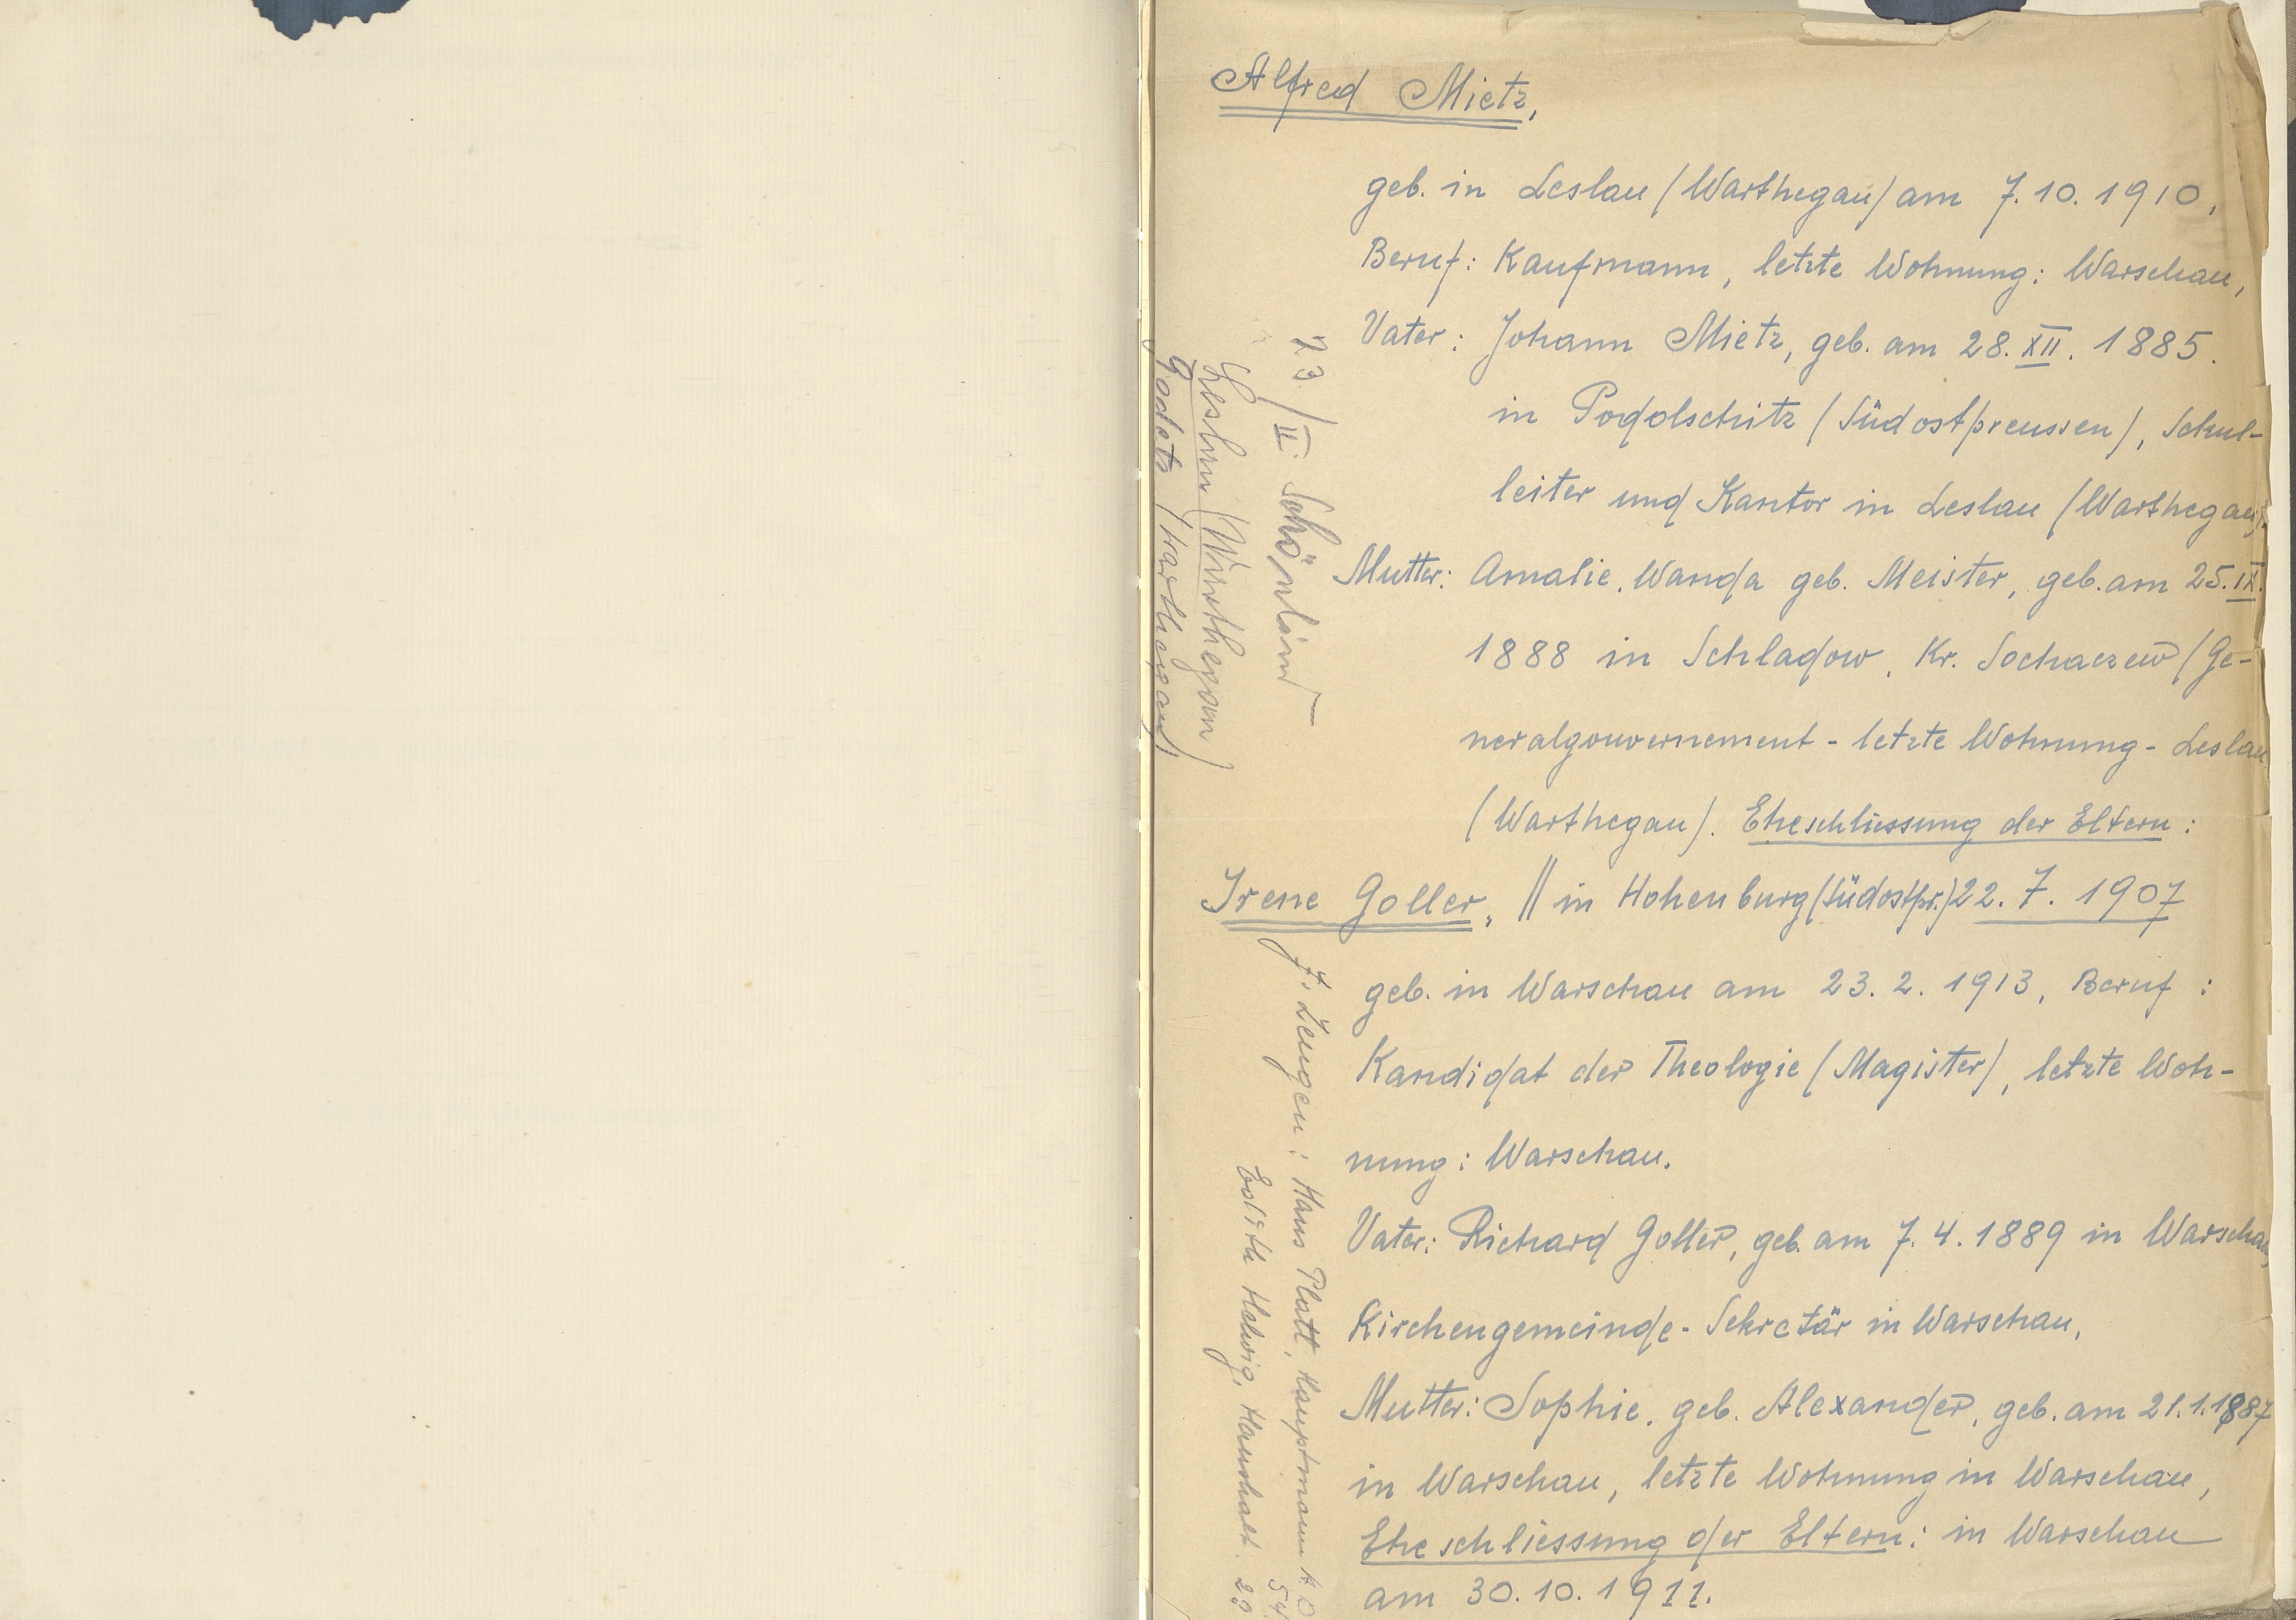 Alfred Mietz,
geb. in Leslau /Warthegau/ am 7.10.1910,
Beruf: Kaufmann, letzte Wohnung: Warschau,
Vater: Johann Mietz, geb. am 28.XII.1885.
in Podolschitz /Südostpreussen/, Schul-
leiter und Kantor in Leslau /Warthegau/.
Mutter: Amalie, Wanda geb. Meister, geb. am 25.IX.
1888 in Schladow, Kr. Sochaczew /Ge-
neralgouvernement - letzte Wohnung - Leslau
/Warthegau/. Eheschliessung der Eltern:
Irene Goller, // in Hohenburg /Südostpr./ 22.7.1907
geb. in Warschau am 23.2.1913, Beruf:
Kandidat der Theologie /Magister/, letzte Woh-
nung: Warschau.
Vater: Richard Goller, geb. am 7.4.1889 in Warschau,
Kirchengemeinde-Sekretär in Warschau,
Mutter: Sophie, geb. Alexander, geb. am 21.1.1887
in Warschau, letzte Wohnung in Warschau,
Eheschliessung der Eltern: in Warschau
am 30.10.1911.
23/II.
Leslau /Warthegau/
/Warthegau/
Zeugen: Hans Platt, Hauptmann a. D
54
Edith Helwig, Haushalt. 29